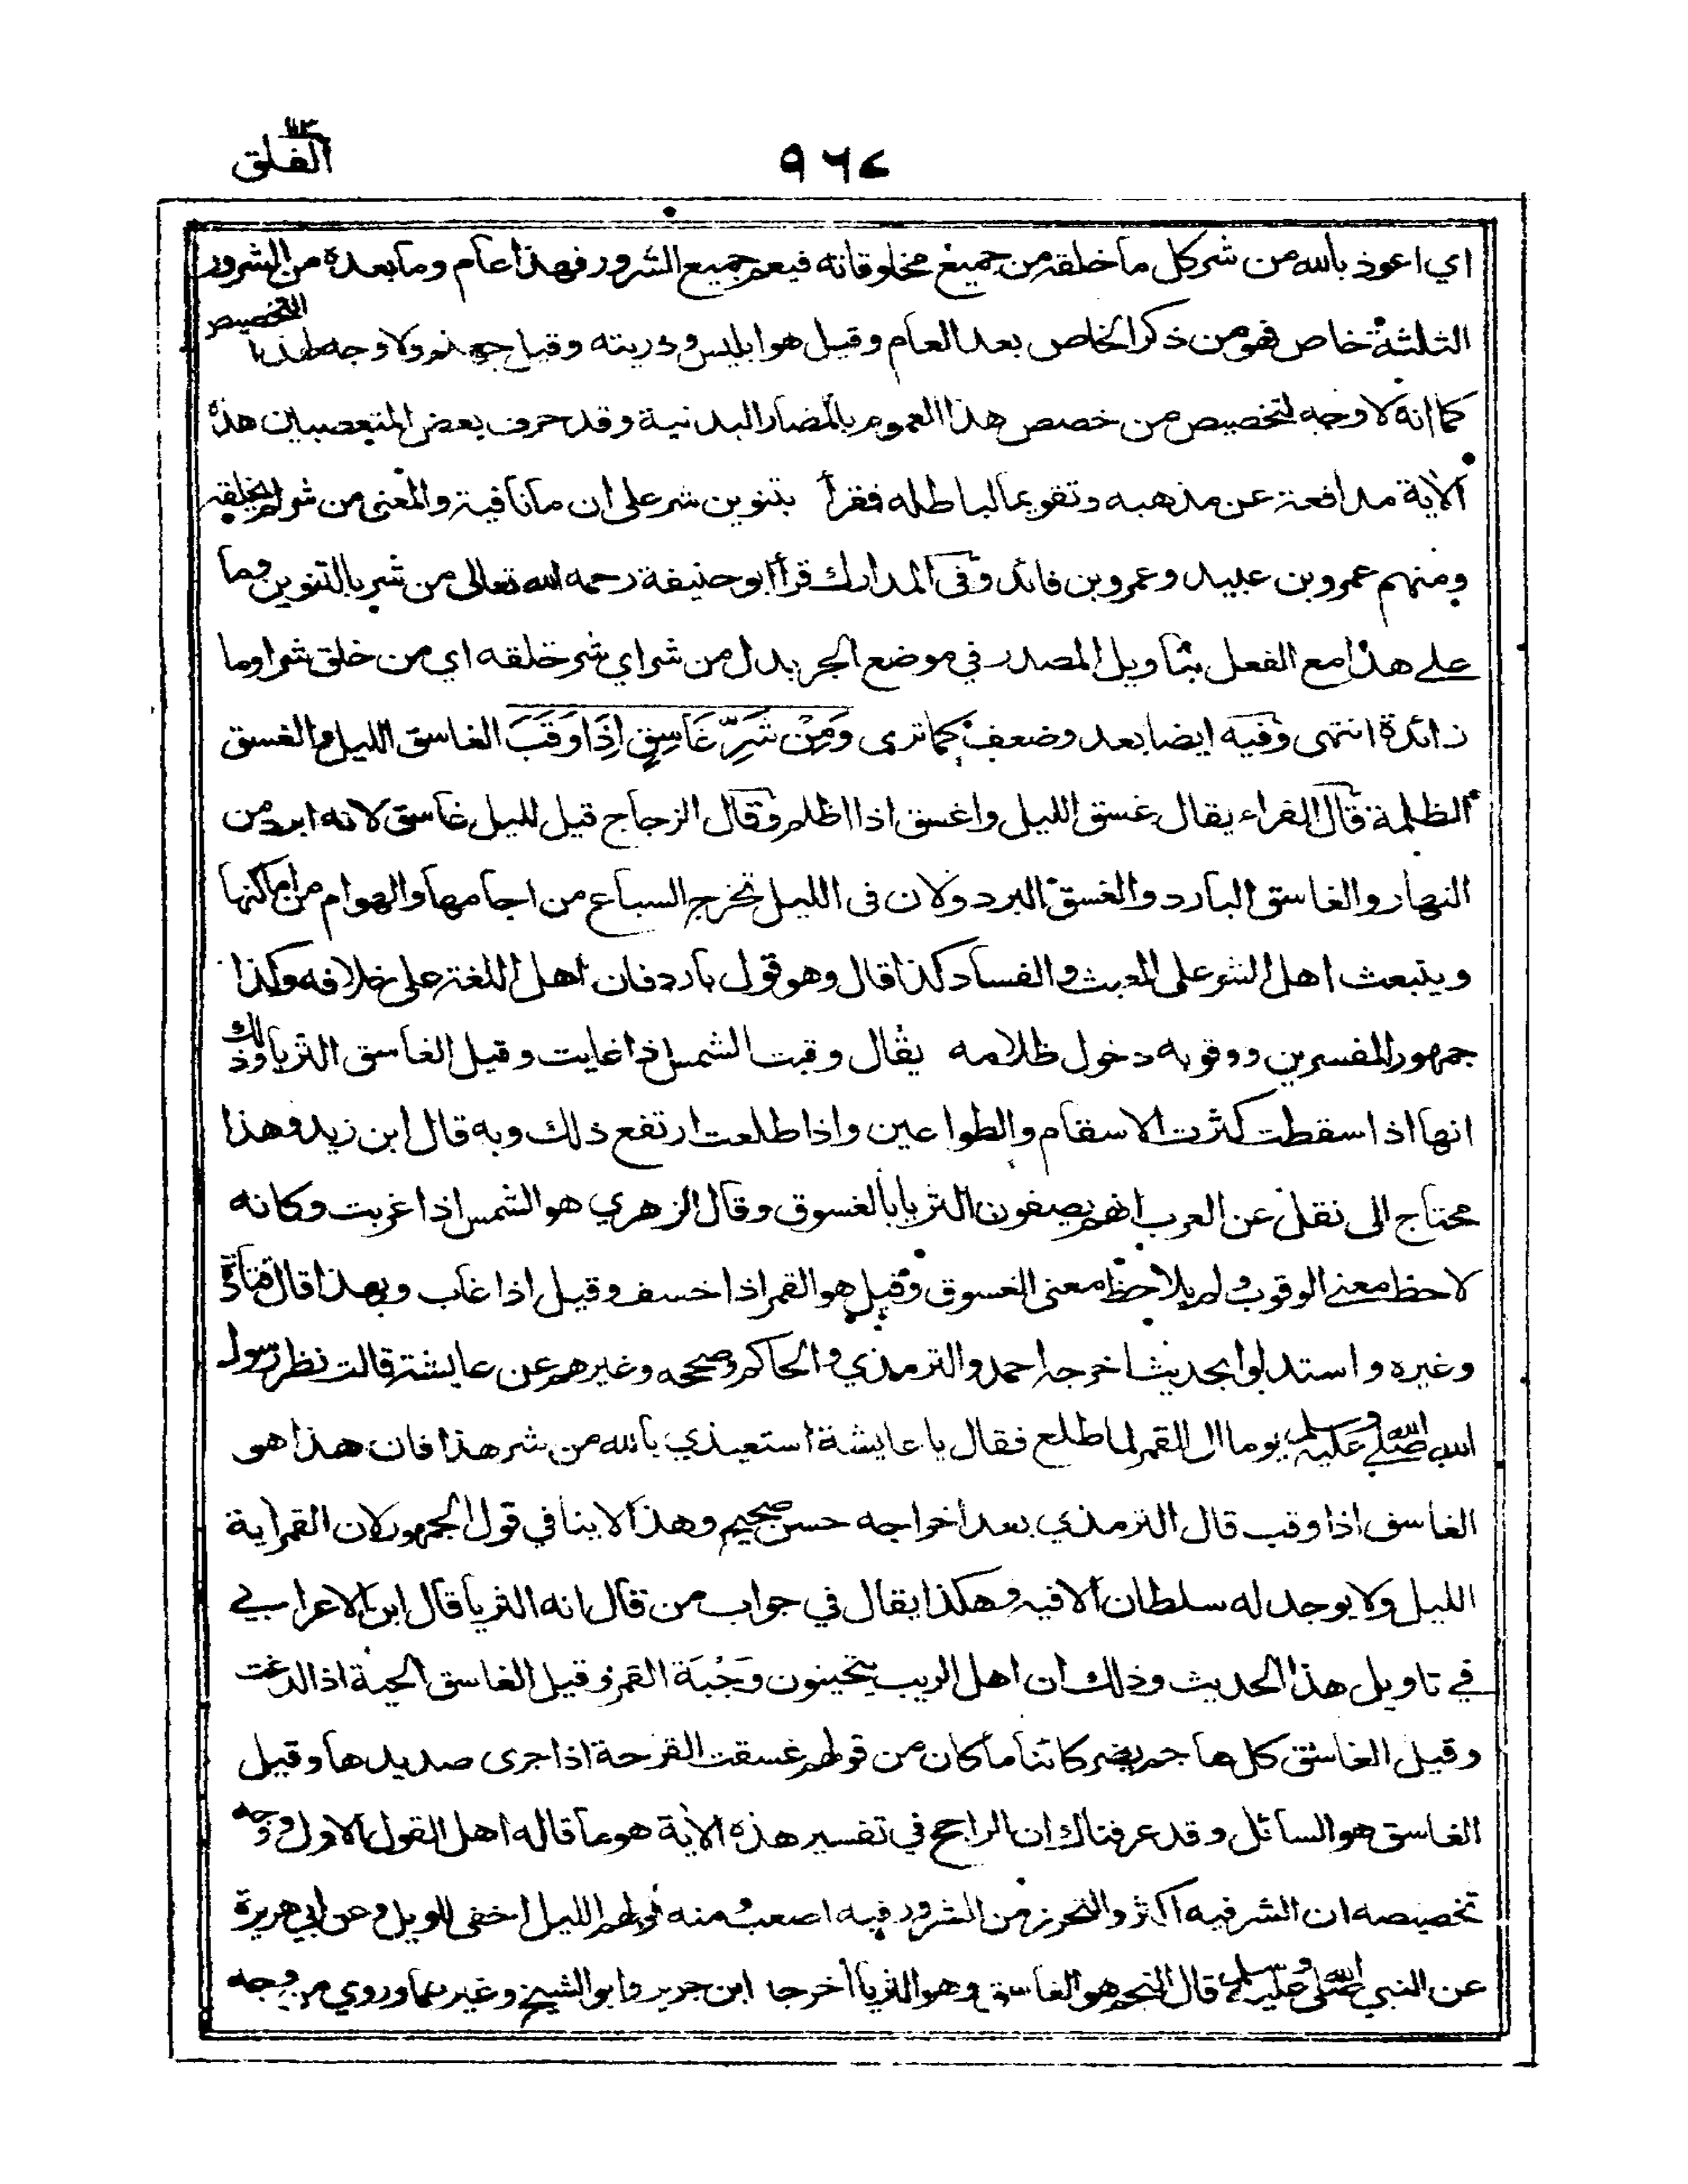 الفلق ١١٣
٩٦٤
اي اعوذ بالله من شر كل ما خلقه من جميع مخلوقاته فيعم جميع الشرور فهذا عام وما بعده من الشرور
الثلثة خاص فهو من ذكر الخاص بعد العام وقيل هو ابليس وذريته وقيل جهنم ولا وجه لهذا التخصيص
كما انه لا وجه لتخصيص من خصص هذا العموم بالمضار البدنية وقد حرف بعض المتعصبين هذه
الاية مدافعة عن مذهبه وتقويما لباطله فقرأ بتنوين شر على ان ما نافية والمعنى من شر لم يخلقه
ومنهم عمرو بن عبيد وعمرو بن فائد وفى المدارك قرأ ابو حنيفة رحمه الله تعالى من شر بالتنوين وما
على هذا مع الفعل بتاويل المصدر في موضع الجر بدل من شر اي شر خلقه اي من خلق شر او ما
زائدة انتهى وفيه ايضا بعد وضعف كما ترى وَمِنْ شَرِّ غَاسِقٍ اِذَا وَقَبَ الغاسق الليل والغسق
الظلمة قال الفراء يقال غسق الليل واغسق اذا اظلم وقال الزجاج قيل لليل غاسق لانه ابرد من
النهار والغاسق البارد والغسق البرد ولان فى الليل تخرج السباع من اجامها والهوام من اماكنها
وينبعث اهل الشر على العبث والفساد كذا قال وهو قول بارد فان اهل اللغة على خلافه وكذا
جمهور المفسرين ووقوبه دخول ظلامه يقال وقبت الشمس اذا غابت وقيل الغاسق الثريا وذلك
انها اذا سقطت كثرت الاسقام والطواعين واذا طلعت ارتفع ذلك وبه قال ابن زيد وهذا
محتاج الى نقل عن العرب انهم يصفون الثريا بالغسوق وقال الزهري هو الشمس اذا غربت وكانه
لاحظ معنى الوقوب ولم يلاحظ معنى الغسوق وقيل هو القمر اذا خسف وقيل اذا غاب وبهذا قال قتادة
وغيره واستدلوا بحديث اخرجه احمد والترمذي والحاكم وصححه وغيرهم عن عايشة قالت نظر رسول
الله صلى الله عليه وسلم يوما الى القمر لما طلع فقال يا عايشة استعيذي بالله من شر هذا فان هذا هو
الغاسق اذا وقب قال الترمذي بعد اخراجه حسن صحيح وهذا لا ينافي قول الجمهور لان القمر اية
الليل ولا يوجد له سلطان الا فيه وهكذا يقال في جواب من قال انه الثريا قال ابن الاعرابي
في تاويل هذا الحديث وذلك ان اهل الريب يتحينون وَجْبَة القمر وقيل الغاسق الحية اذا لدغت
وقيل الغاسق كل هاجم يضر كائنا ما كان من قولهم غسقت القرحة اذا جرى صديدها وقيل
الغاسق هو السائل وقد عرفناك ان الراجح في تفسير هذه الاية هو ما قاله اهل القول الاول ووجه
تخصيصه ان الشر فيه اكثر والتحرز من الشرور فيه اصعب ومنه قولهم الليل اخفى للويل وعن ابي هريرة
عن النبي صلى الله عليه وسلم قال النجم هو الغاسق وهو الثريا أخرجا ابن جرير وابو الشيخ وغيرهما وروي من وجه